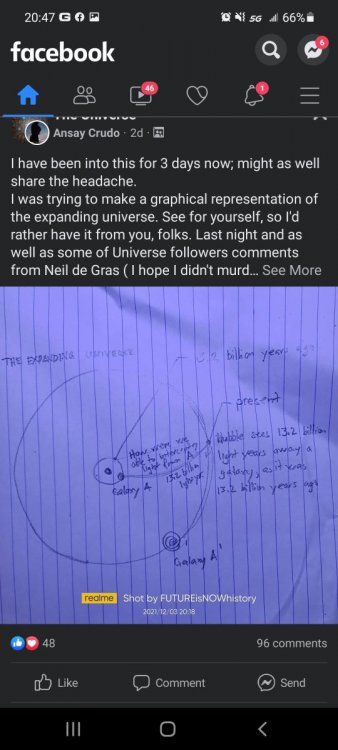 20:47 G 5G 66%
facebook
6
46
1
The Universe
Ansay Crudo · 2d ·
I have been into this for 3 days now; might as well
share the headache.
I was trying to make a graphical representation of
the expanding universe. See for yourself, so I'd
rather have it from you, folks. Last night and as
well as some of Universe followers comments
from Neil de Gras ( I hope I didn't murd... See More
THE EXPANDING UNIVERSE
billion years
present
Hubble sees 13.2 billion
light years away a
galaxy, as it was
13.2 billion years ago
How were we
able to
light from A
13.2 billion
Galaxy A
Galaxy A'
realme Shot by FUTUREisNOWhistory
2021/12/03 20:18
48
96 comments
Like Comment Send